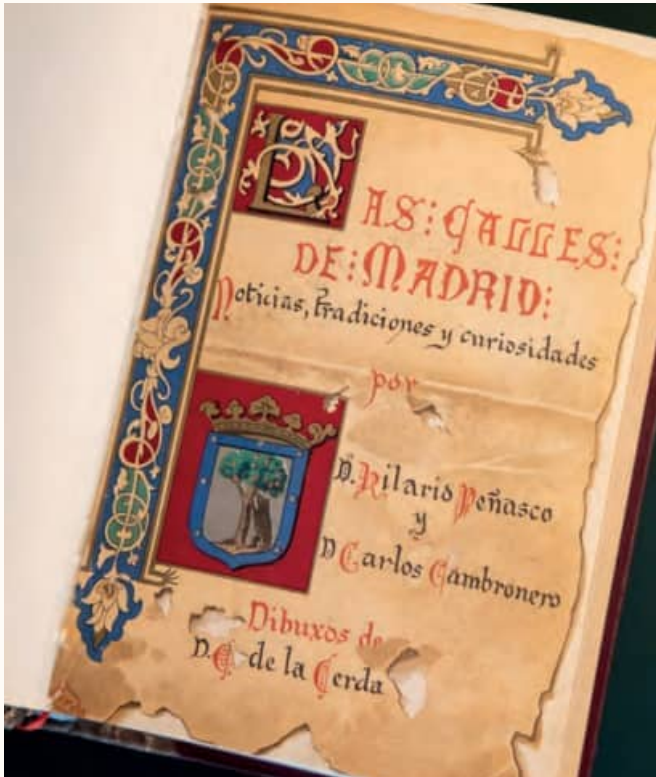 LAS: CALLES:
DE: MADRID:
Noticias, tradiciones y curiosidades
por
D. Hilario Peñasco
y
D Carlos Cambronero
Dibuxos de
D. C. de la Cerda